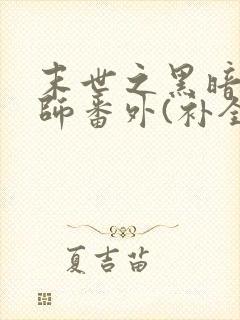 末世之黑暗
师番外(补全
夏吉苗